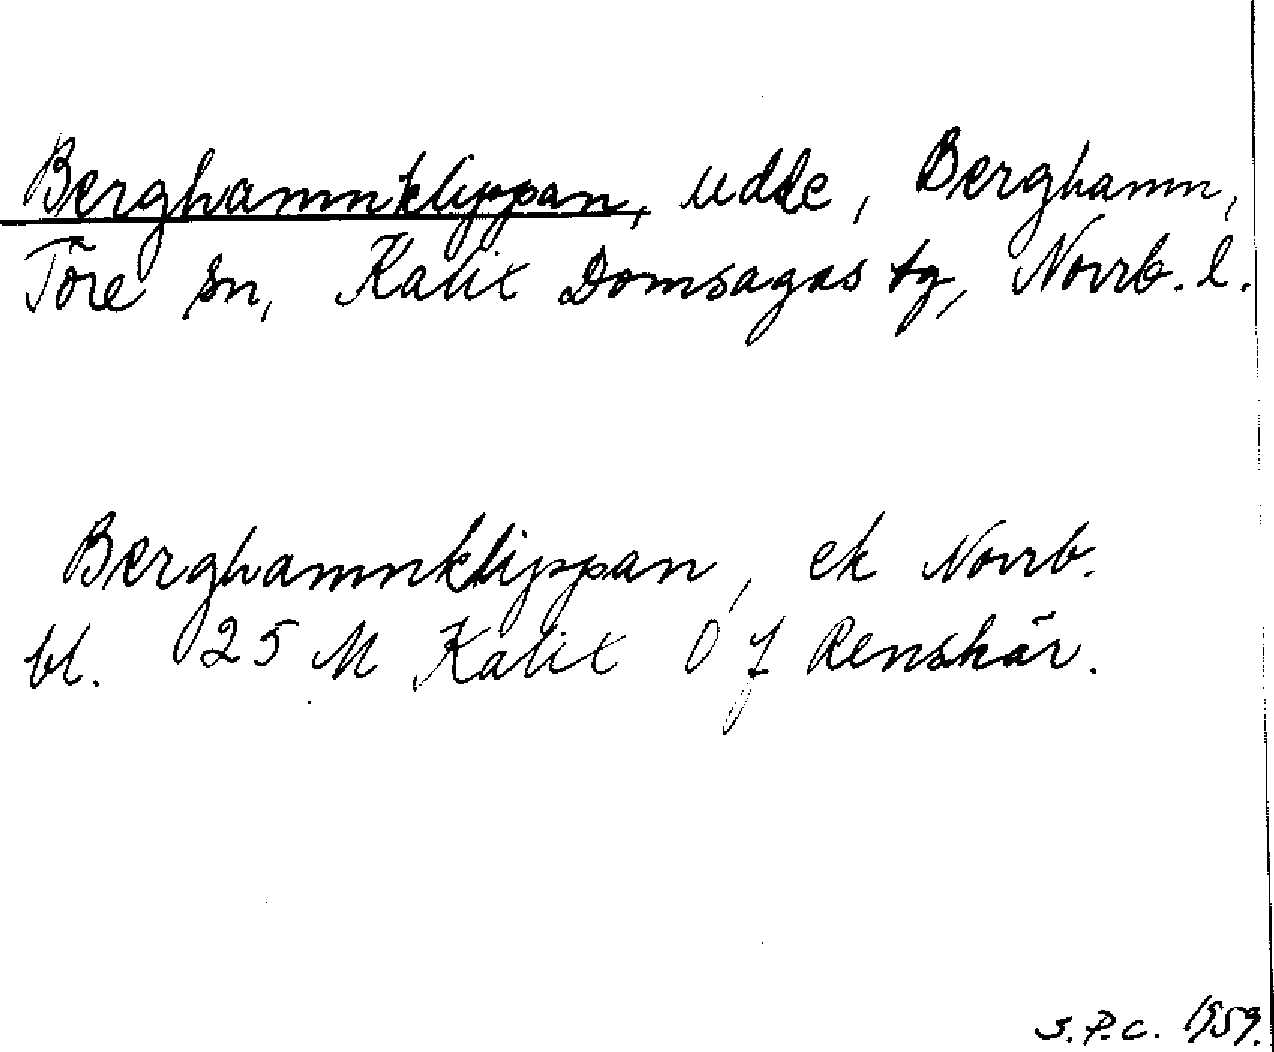 Berghamnklippan, udde, Berghamn,
Töre sn, Kalix Domsagas tg, Norrb. l.
Berghamnklippan, ek Norrb.
bl. 25 M Kalix Ö f Renskär.
S.P.C. 1959.